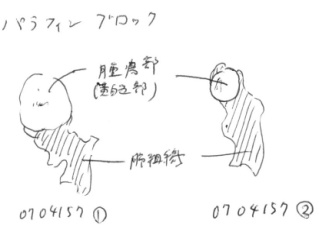 パラフィン ブロック
腫瘍部
(蛋白色部)
肺組織
0704157 ①
0704157 ②